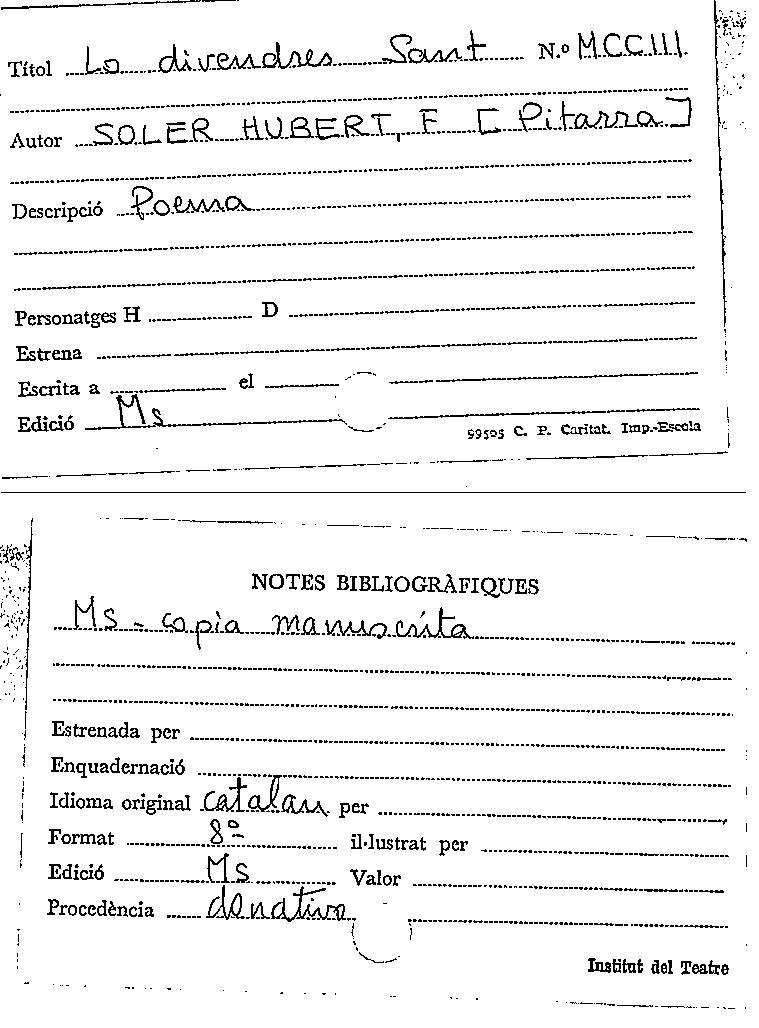 Títol Lo divendres Sant N.º MCCIII
Autor SOLER HUBERT, F [Pitarra]
Descripció Poema
Personatges H D
Estrena
Escrita a el
Edició Ms
99505 C. P. Caritat. Imp.-Escola
NOTES BIBLIOGRÀFIQUES
Ms - copia manuscrita
Estrenada per
Enquadernació
Idioma original catalan per
Format 8º il·lustrat per
Edició Ms Valor
Procedència donativo
Institut del Teatre